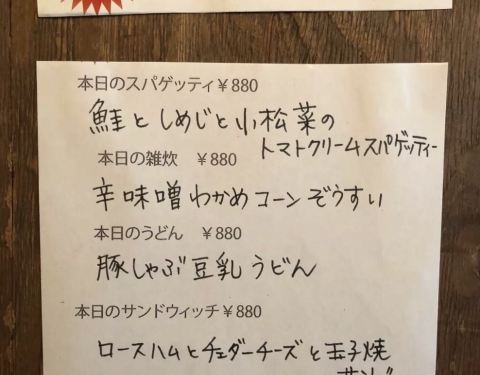 本日のスパゲッティ￥880
鮭としめじと小松菜の
トマトクリームスパゲッティー
本日の雑炊　￥880
辛味噌わかめコーンぞうすい
本日のうどん　￥880
豚しゃぶ豆乳うどん
本日のサンドウィッチ￥880
ロースハムとチェダーチーズと玉子焼